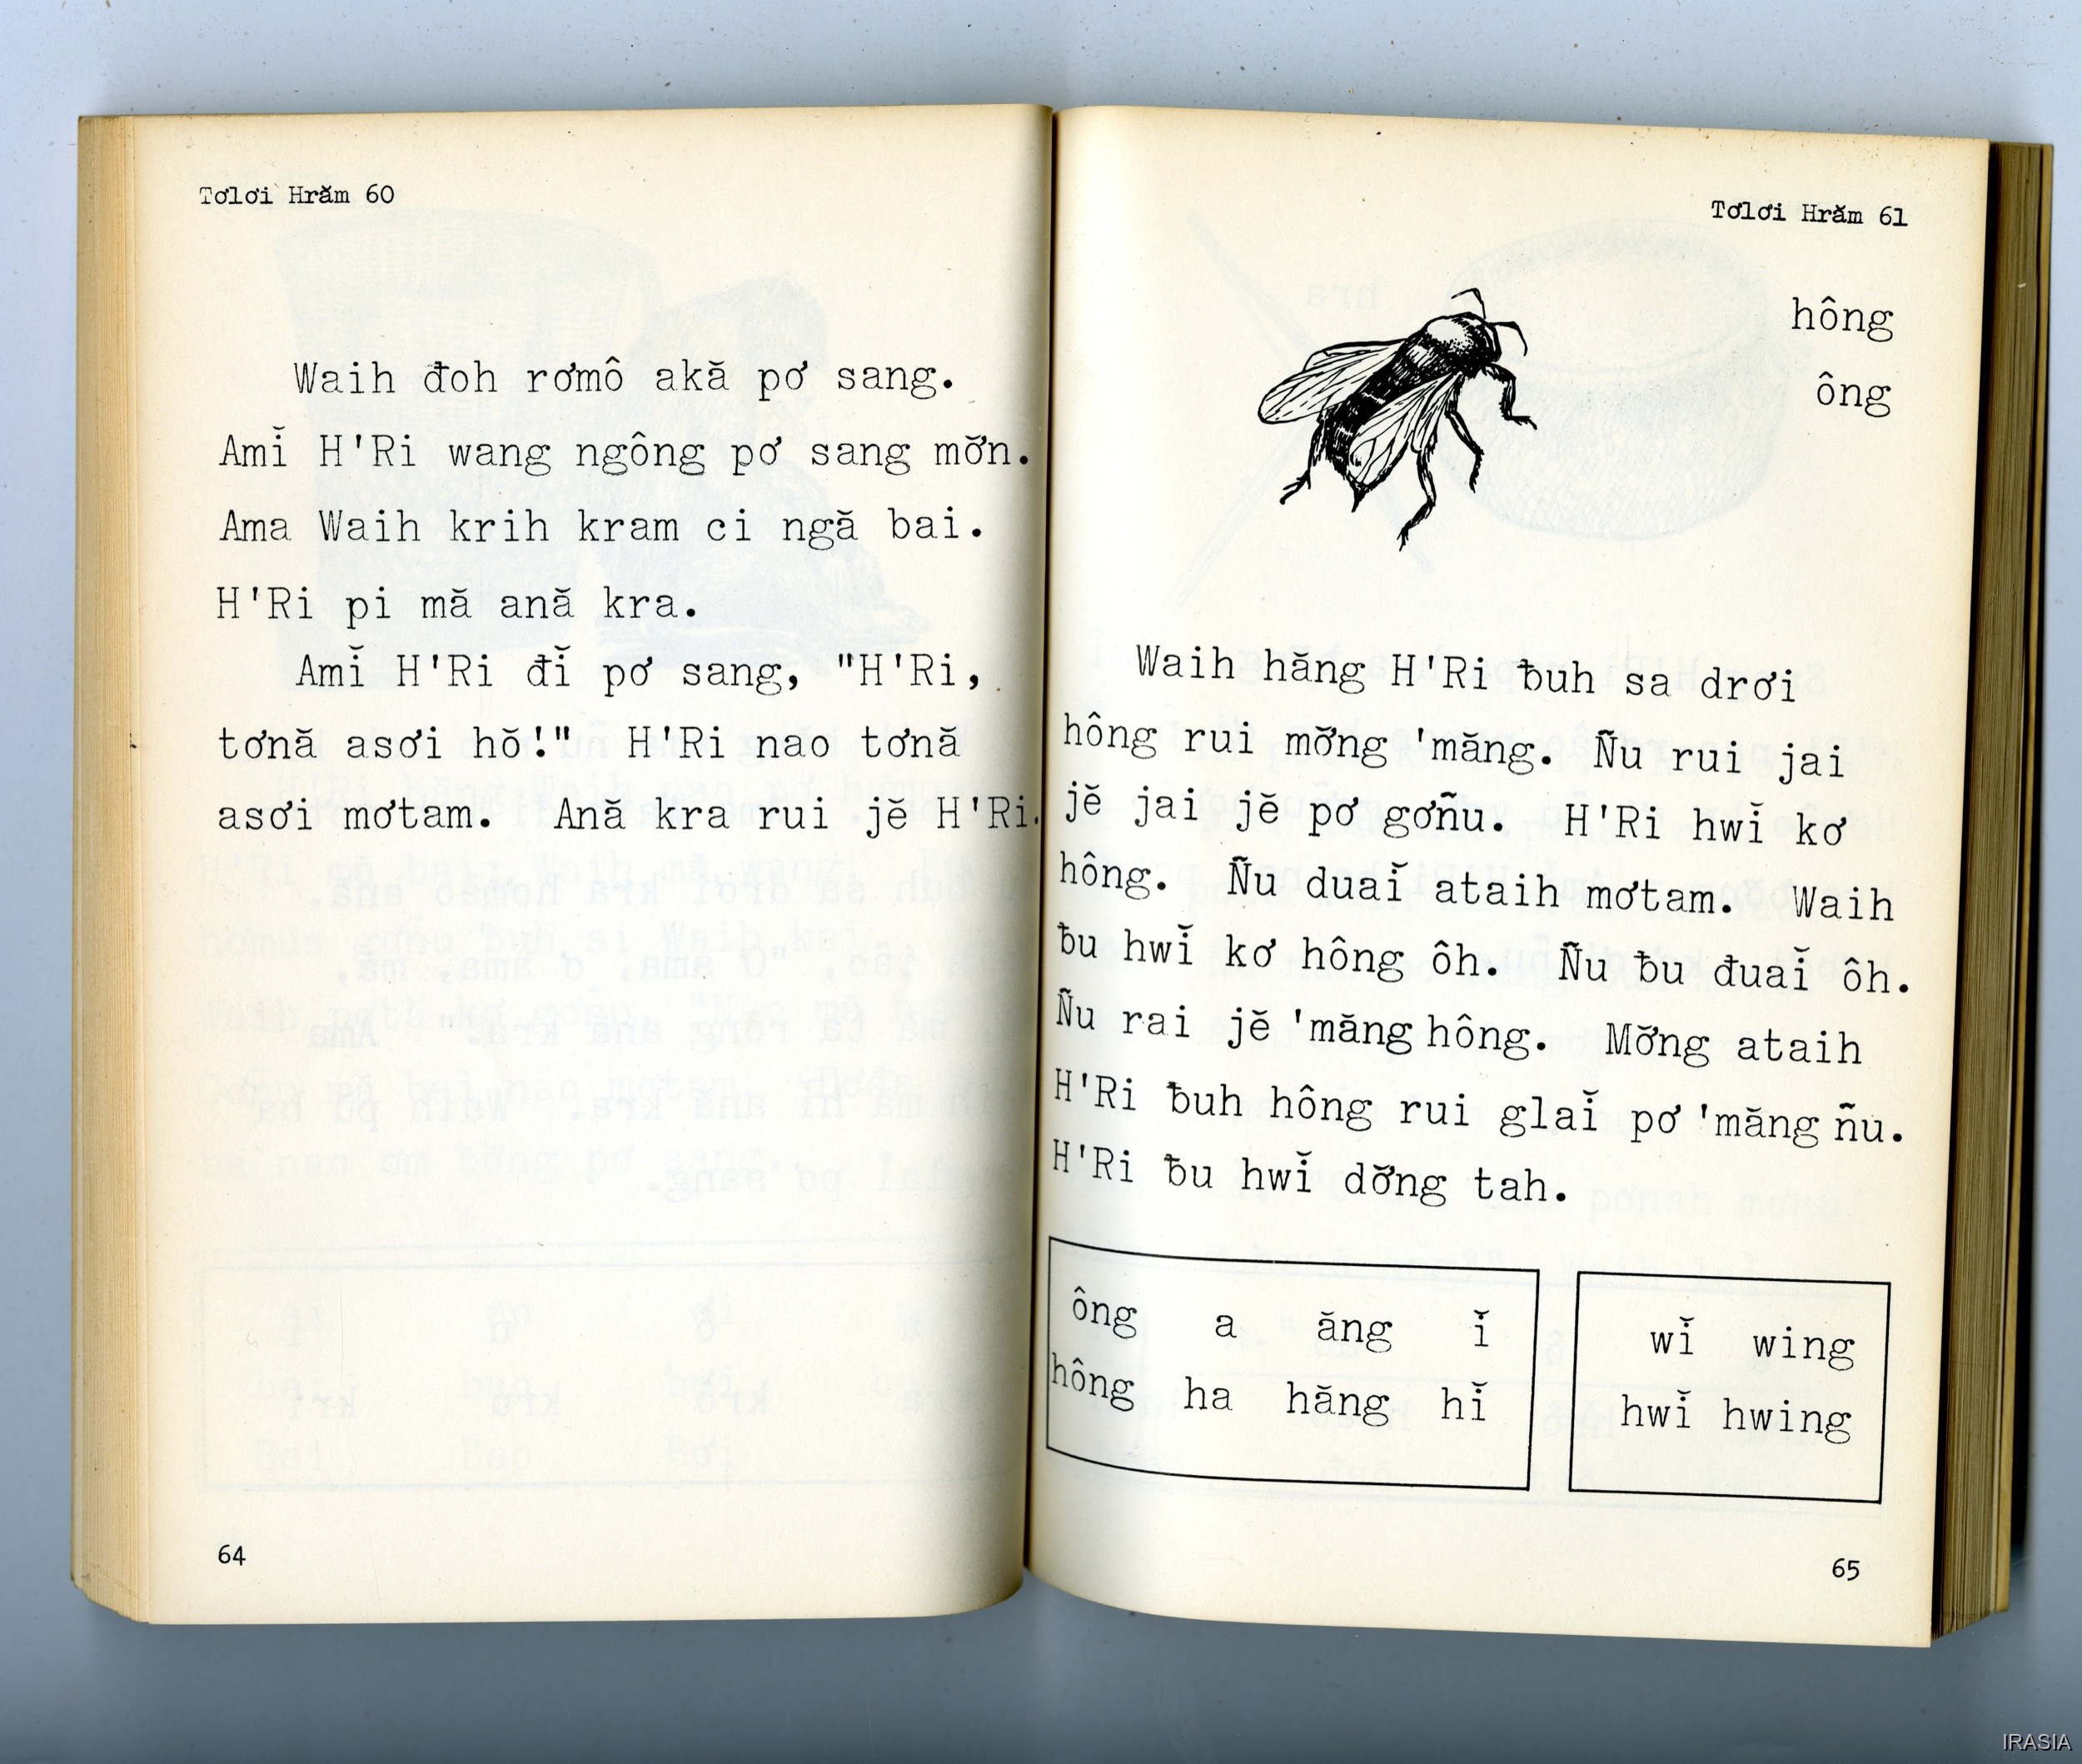 Tơlơi Hrăm 60
Waih đoh rơmô akă pơ sang.
Amĭ H'Ri wang ngông pơ sang mơ̆n.
Ama Waih krih kram ci ngă bai.
H'Ri pi mă ană kra.
Amĭ H'Ri đĭ pơ sang, "H'Ri,
tơnă asơi hŏ!" H'Ri nao tơnă
asơi mơtam. Ană kra rui jĕ H'Ri.
64
Tơlơi Hrăm 61
hông
ông
Waih hăng H'Ri ƀuh sa drơi
hông rui mơ̆ng 'măng. Ñu rui jai
jĕ jai jĕ pơ gơñu. H'Ri hwĭ kơ
hông. Ñu đuaĭ ataih mơtam. Waih
ƀu hwĭ kơ hông ôh. Ñu ƀu đuaĭ ôh.
Ñu rai jĕ 'măng hông. Mơ̆ng ataih
H'Ri ƀuh hông rui glaĭ pơ 'măng ñu.
H'Ri ƀu hwĭ dơ̆ng tah.
ông a ăng ĭ
hông ha hăng hĭ
wĭ wing
hwĭ hwing
65
IRASIA